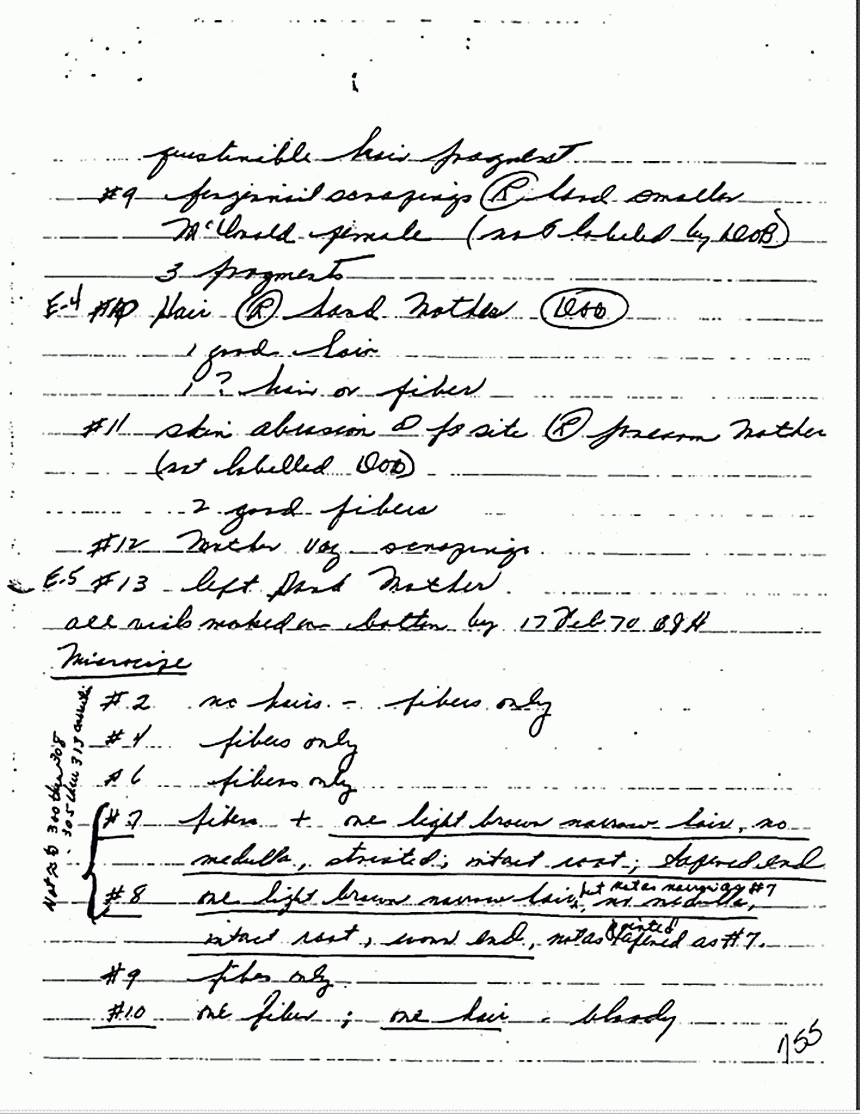 questionible hair fragment
#9 fingernail scrapings (R) hand smaller
McDonald female (not labeled by DOB)
3 fragments
E-4 #10 Hair (R) hand Mother
1 good hair
1 ? hair or fiber
#11 skin abrasion site (R) forearm Mother
(not labelled DOB)
2 good fibers
#12 Mother vag scrapings
E-5 #13 left hand Mother
all vials marked on bottom by 17 Feb 70
#2 no hairs - fibers only
#4 fibers only
#6 fibers only
#7 fibers + one light brown narrow hair, no
medulla, striated; intact root; tapered end
#8 one light brown narrow hair, but not as narrow as #7 no medulla,
intact root, worn end, not as pointed tapered as #7.
#9 fiber only
#10 one fiber ; one hair - bloody
155